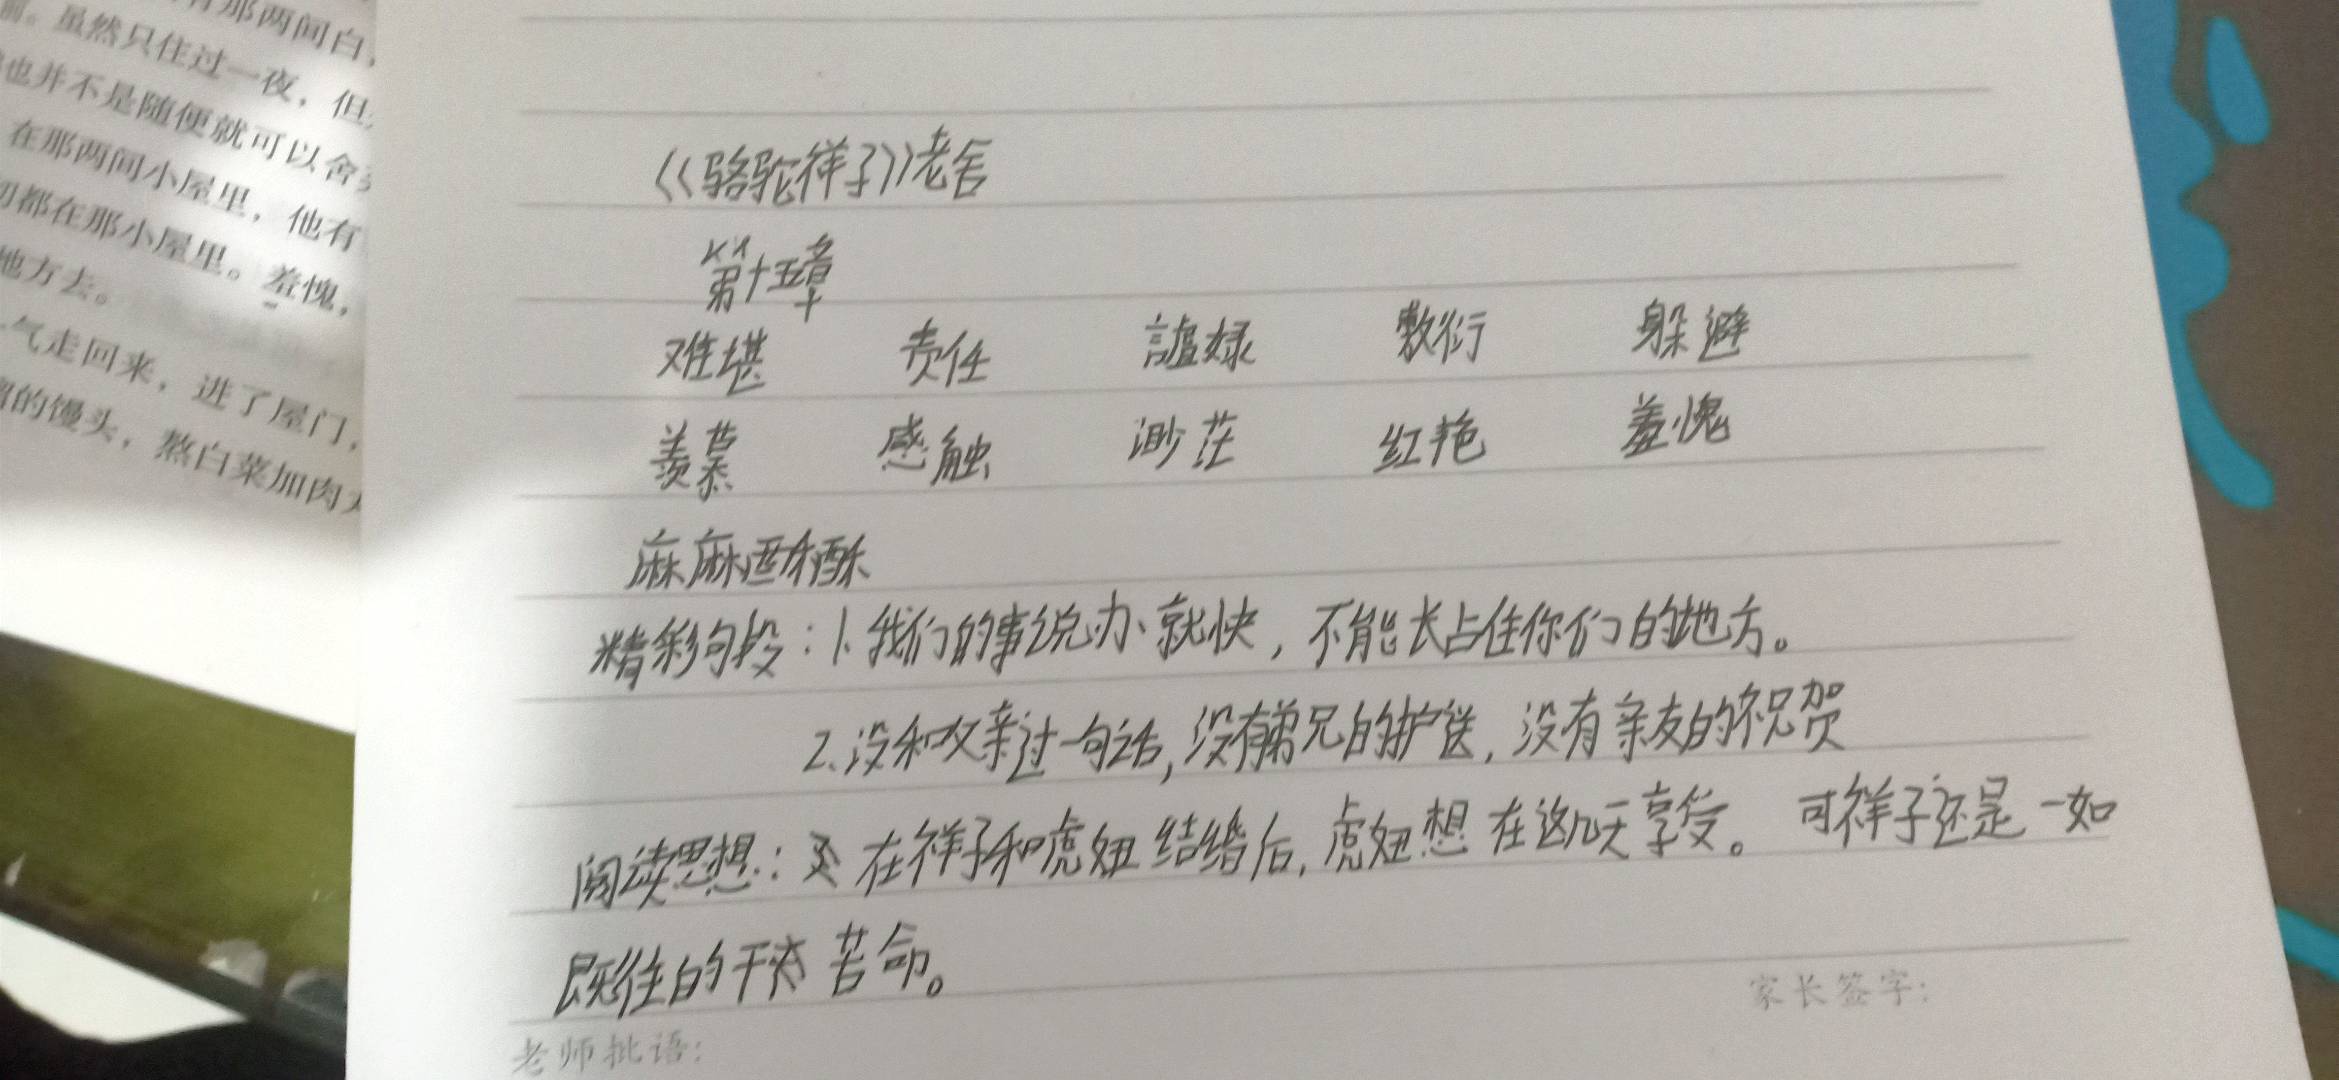 那两间白,
前。虽然只住过一夜,但
也并不是随便就可以舍
在那两间小屋里,他有
切都在那小屋里。羞愧,
地方去。
气走回来,进了屋门,
的馒头,熬白菜加肉丸
《骆驼祥子》老舍
第十五章
难堪 责任 敷衍 躲避
羡慕 感触 渺茫 红艳 羞愧
麻麻酥酥
精彩句段:1、我们的事说办就快,不能长占住你们的地方。
2、没和父亲过一句话,没有弟兄的护送,没有亲友的祝贺
阅读思想:在祥子和虎妞结婚后,虎妞想在这几天享受。可祥子还是一如
既往的干着苦命。
家长签字:
老师批语: